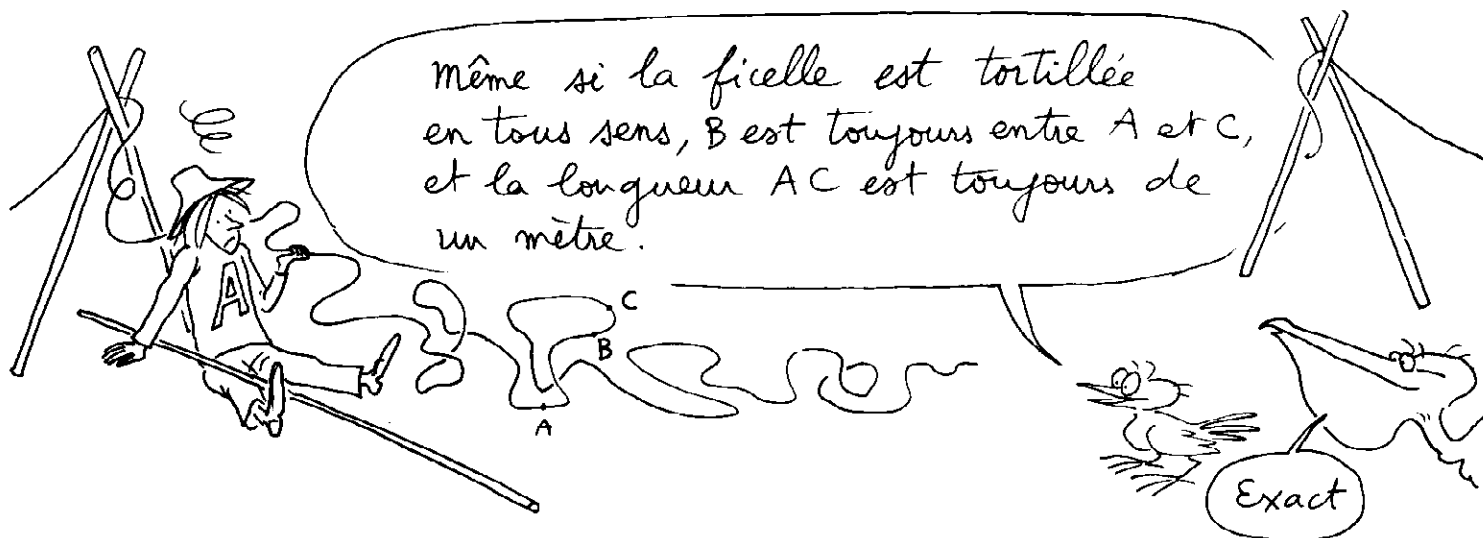 même si la ficelle est tortillée
en tous sens, B est toujours entre A et C,
et la longueur AC est toujours de
un mètre.
A
C
B
A
Exact